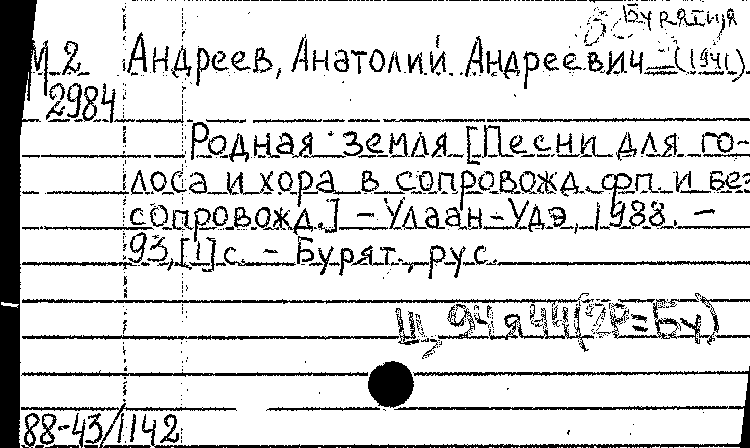 Бурятия
М 2
2984
Андреев, Анатолий Андреевич (1941)
Родная земля [Песни для го-
лоса и хора в сопровожд. фп. и без
сопровожд.] - Улаан-Удэ, 1988. -
93, [1] с. - Бурят., рус.
Щ 94 я 44 (2Р=Бу)
88-43/1142